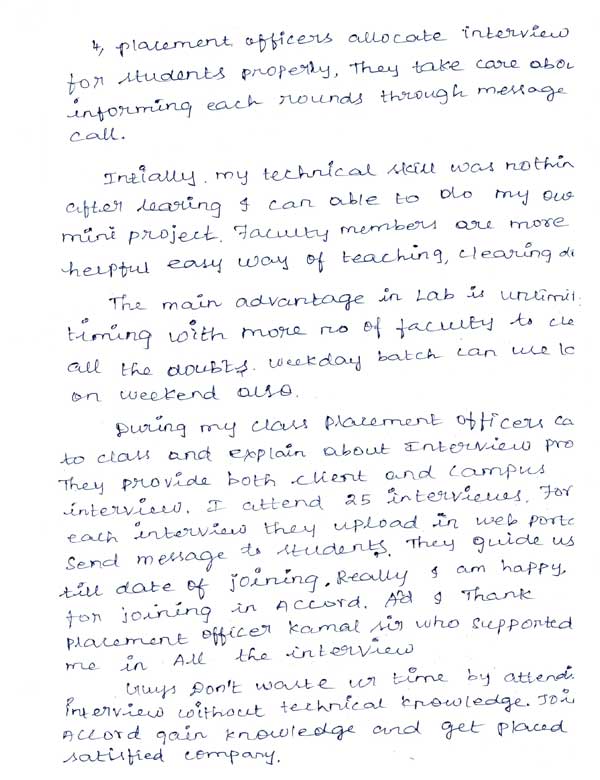 4, placement officers allocate interview
for students properly, They take care abou
informing each rounds through message
call.
Intially, my technical skill was nothin
after learing I can able to do my ow
mini project. Faculty members are more
helpful easy way of teaching, clearing d
The main advantage in Lab is unlimi
timing with more no of faculty to cle
all the doubts. weekday batch can use l
on weekend also.
During my class placement officers ca
to class and explain about Interview pro
They provide both client and campus
interview. I attend 25 interviews. For
each interview they upload in web porta
Send message to students. They guide us
till date of joining. Really I am happy,
for joining in Accord. Ad I Thank
placement officer Kamal sir who supported
me in All the interview
Guys Don't waste ur time by attendi
interview without technical knowledge. Joi
Accord gain knowledge and get placed
satisfied company.